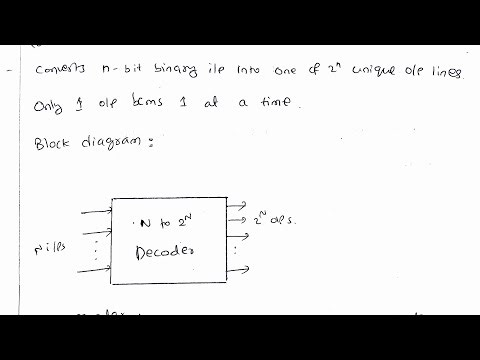 - Converts n-bit binary i/p into one of 2ⁿ unique o/p lines.
Only 1 o/p bcms 1 at a time.
Block diagram:
N to 2ᴺ
2ᴺ o/ps.
n i/ps
Decoder